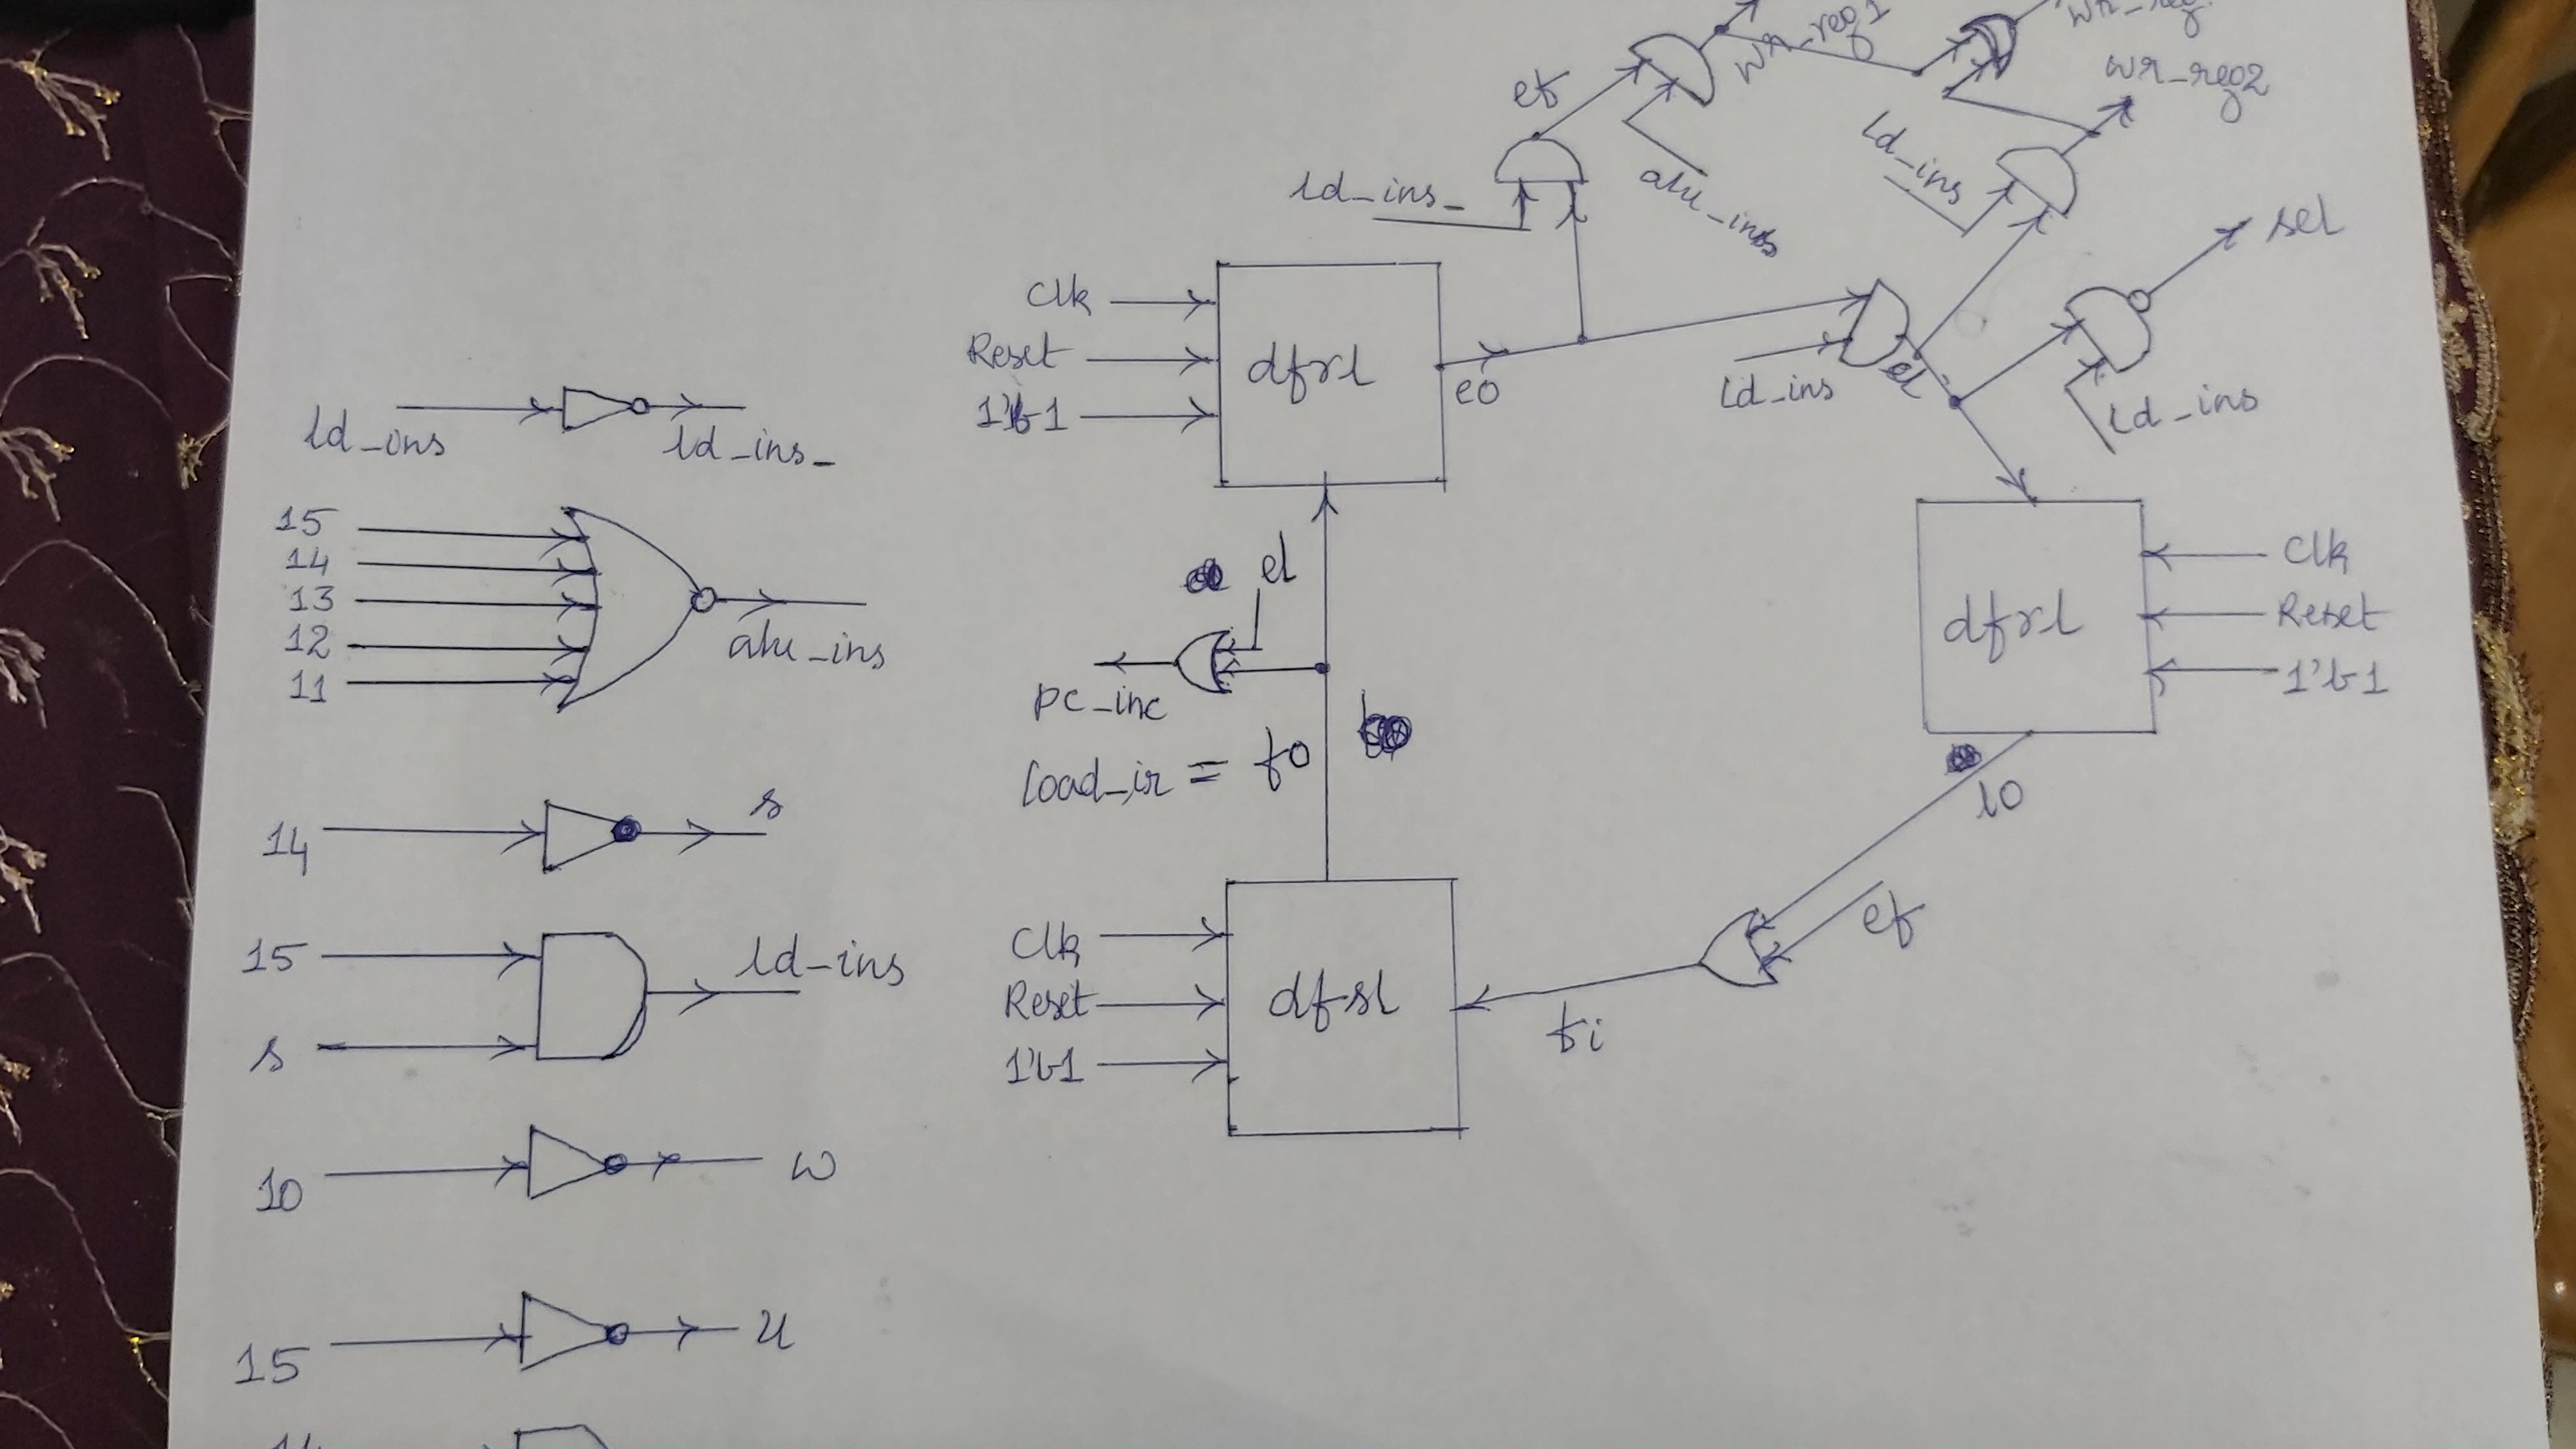 ld_ins
ld_ins_
15
14
13
12
11
alu_ins
14
s
15
s
ld_ins
10
w
15
u
ef
wr_reg1
wr_reg2
ld_ins_
alu_ins
ld_ins
sel
Clk
Reset
1'b1
dfrl
eo
ld_ins
el
ld_ins
el
pc_inc
load_ir = fo
dfrl
Clk
Reset
1'b1
lo
ef
Clk
Reset
1'b1
dfsl
fi